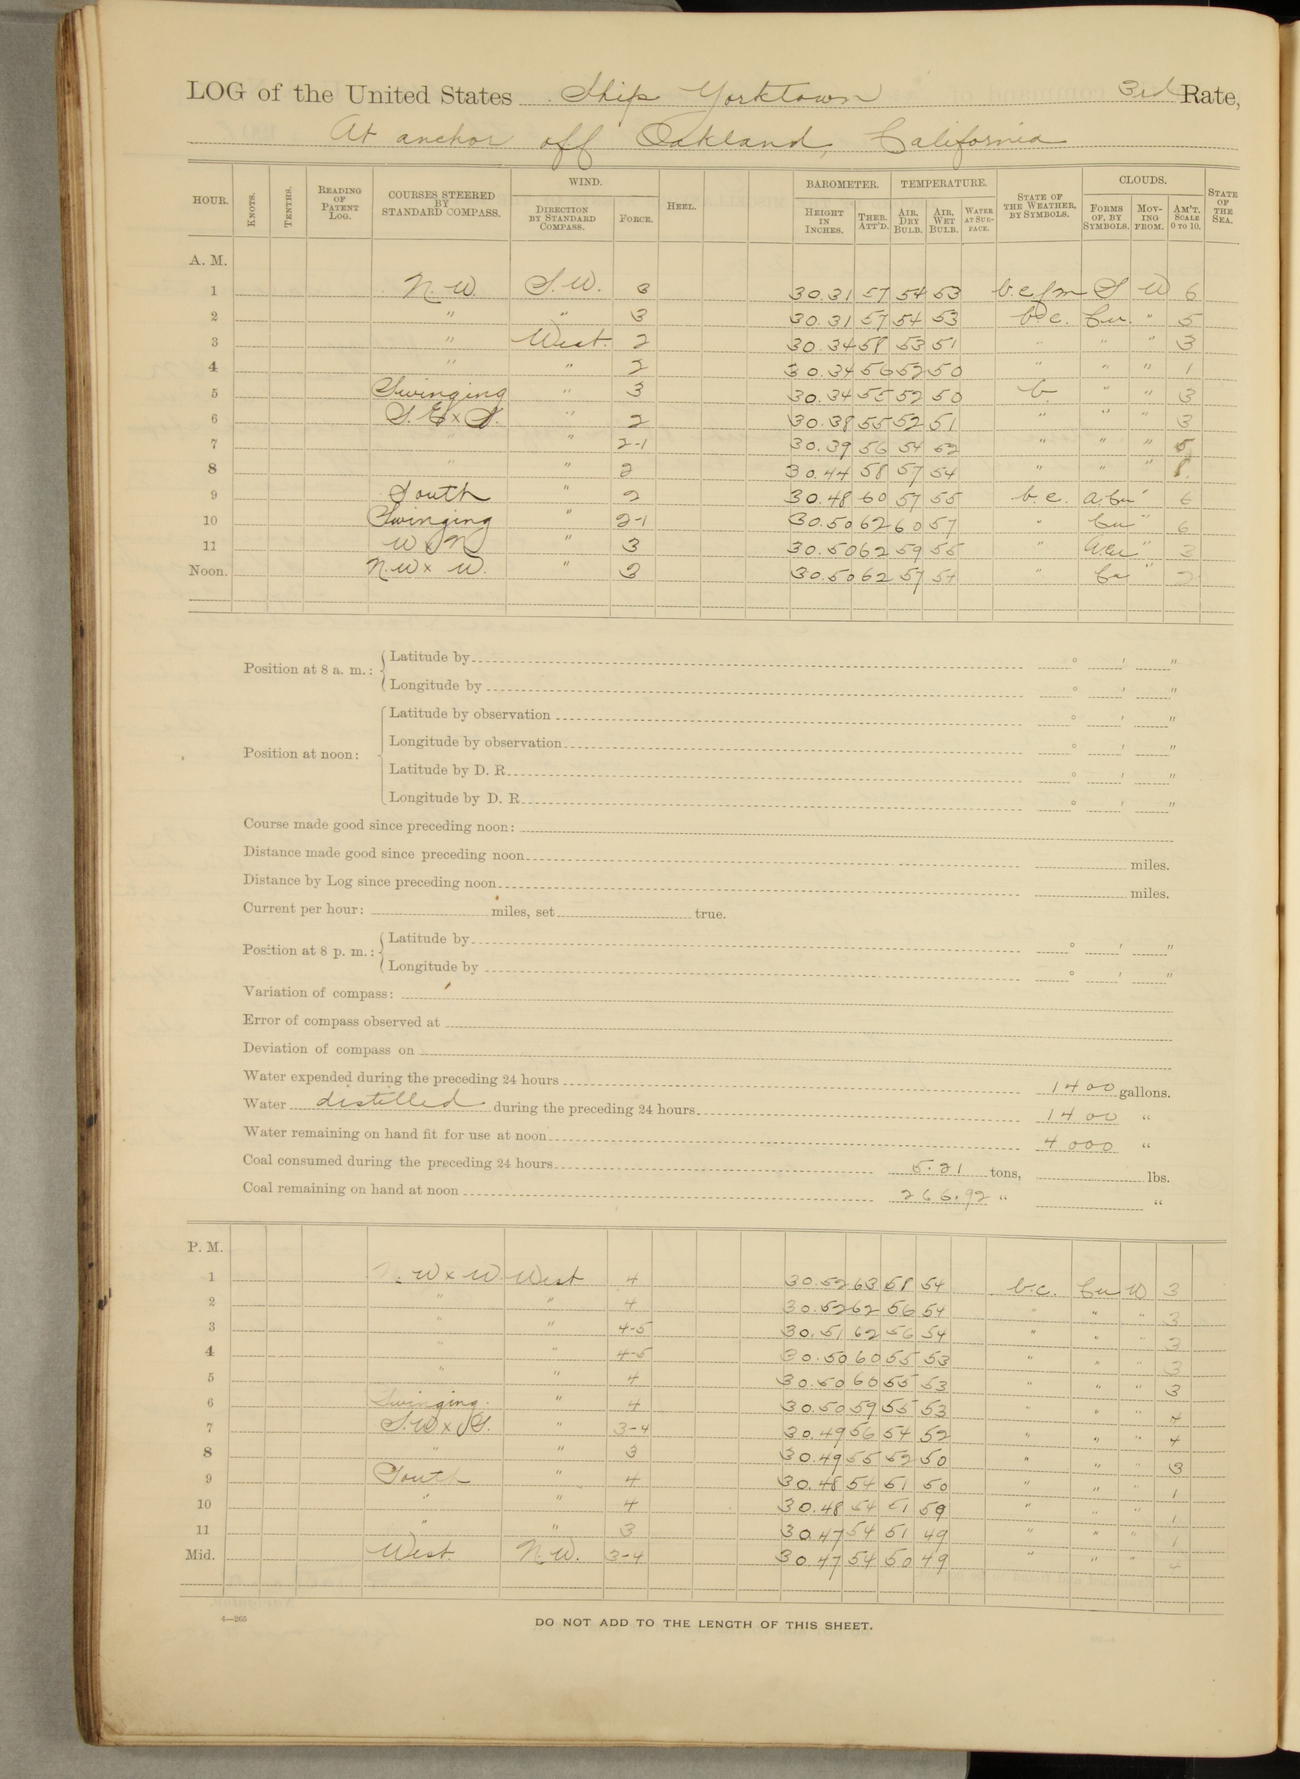 LOG of the United States Ship Yorktown 3rd Rate,
At anchor off Oakland, California
HOUR. KNOTS. TENTHS. READING OF PATENT LOG. COURSES STEERED BY STANDARD COMPASS. WIND. DIRECTION BY STANDARD COMPASS. FORCE. HEEL. BAROMETER. HEIGHT IN INCHES. THER. ATT'D. TEMPERATURE. AIR, DRY BULB. AIR, WET BULB. WATER AT SURFACE. STATE OF THE WEATHER, BY SYMBOLS. CLOUDS. FORMS OF, BY SYMBOLS. MOVING FROM. AM'T. SCALE 0 TO 10. STATE OF THE SEA.
A. M.
1 N.W. S.W. 3 30.31 57 54 53 b.c.f.m S W 6
2 " " 3 30.31 57 54 53 b.c. Cu. " 5
3 " West. 2 30.34 58 53 51 " " " 3
4 " " 2 30.34 56 52 50 " " " 1
5 Swinging " 3 30.34 55 52 50 b. " " 3
6 S.E x S. " 2 30.38 55 52 51 " " " 3
7 " " 2-1 30.39 56 54 52 " " " 5
8 " " 2 30.44 58 57 54 " " "
9 South " 2 30.48 60 57 55 b.c. a.cu " 6
10 Swinging " 2-1 30.50 62 60 57 " Cu " 6
11 W x N " 3 30.50 62 59 55 " Acu " 3
Noon. N.W x W. " 3 30.50 62 57 54 " Cu " 2
Position at 8 a. m.: Latitude by ° ' "
Longitude by ° ' "
Position at noon: Latitude by observation ° ' "
Longitude by observation ° ' "
Latitude by D. R. ° ' "
Longitude by D. R. ° ' "
Course made good since preceding noon:
Distance made good since preceding noon miles.
Distance by Log since preceding noon miles.
Current per hour: miles, set true.
Position at 8 p. m.: Latitude by ° ' "
Longitude by ° ' "
Variation of compass:
Error of compass observed at
Deviation of compass on
Water expended during the preceding 24 hours 1400 gallons.
Water distilled during the preceding 24 hours 1400 "
Water remaining on hand fit for use at noon 4000 "
Coal consumed during the preceding 24 hours 5.21 tons, lbs.
Coal remaining on hand at noon 266.92 " "
P. M.
1 N.W x W West 4 30.52 63 58 54 b.c. Cu W 3
2 " " 4 30.52 62 56 54 " " " 3
3 " " 4-5 30.51 62 56 54 " " " 3
4 " " 4-5 30.50 60 55 53 " " " 3
5 " " 4 30.50 60 55 53 " " " 3
6 Swinging. " 4 30.50 59 55 53 " " " 4
7 S.W x S. " 3-4 30.49 56 54 52 " " " 4
8 " " 3 30.49 55 52 50 " " " 3
9 South " 4 30.48 54 51 50 " " " 1
10 " " 4 30.48 54 51 50 " " " 1
11 " " 3 30.47 54 51 49 " " " 1
Mid. West. N.W. 3-4 30.47 54 50 49 " " " 4
4—265
DO NOT ADD TO THE LENGTH OF THIS SHEET.